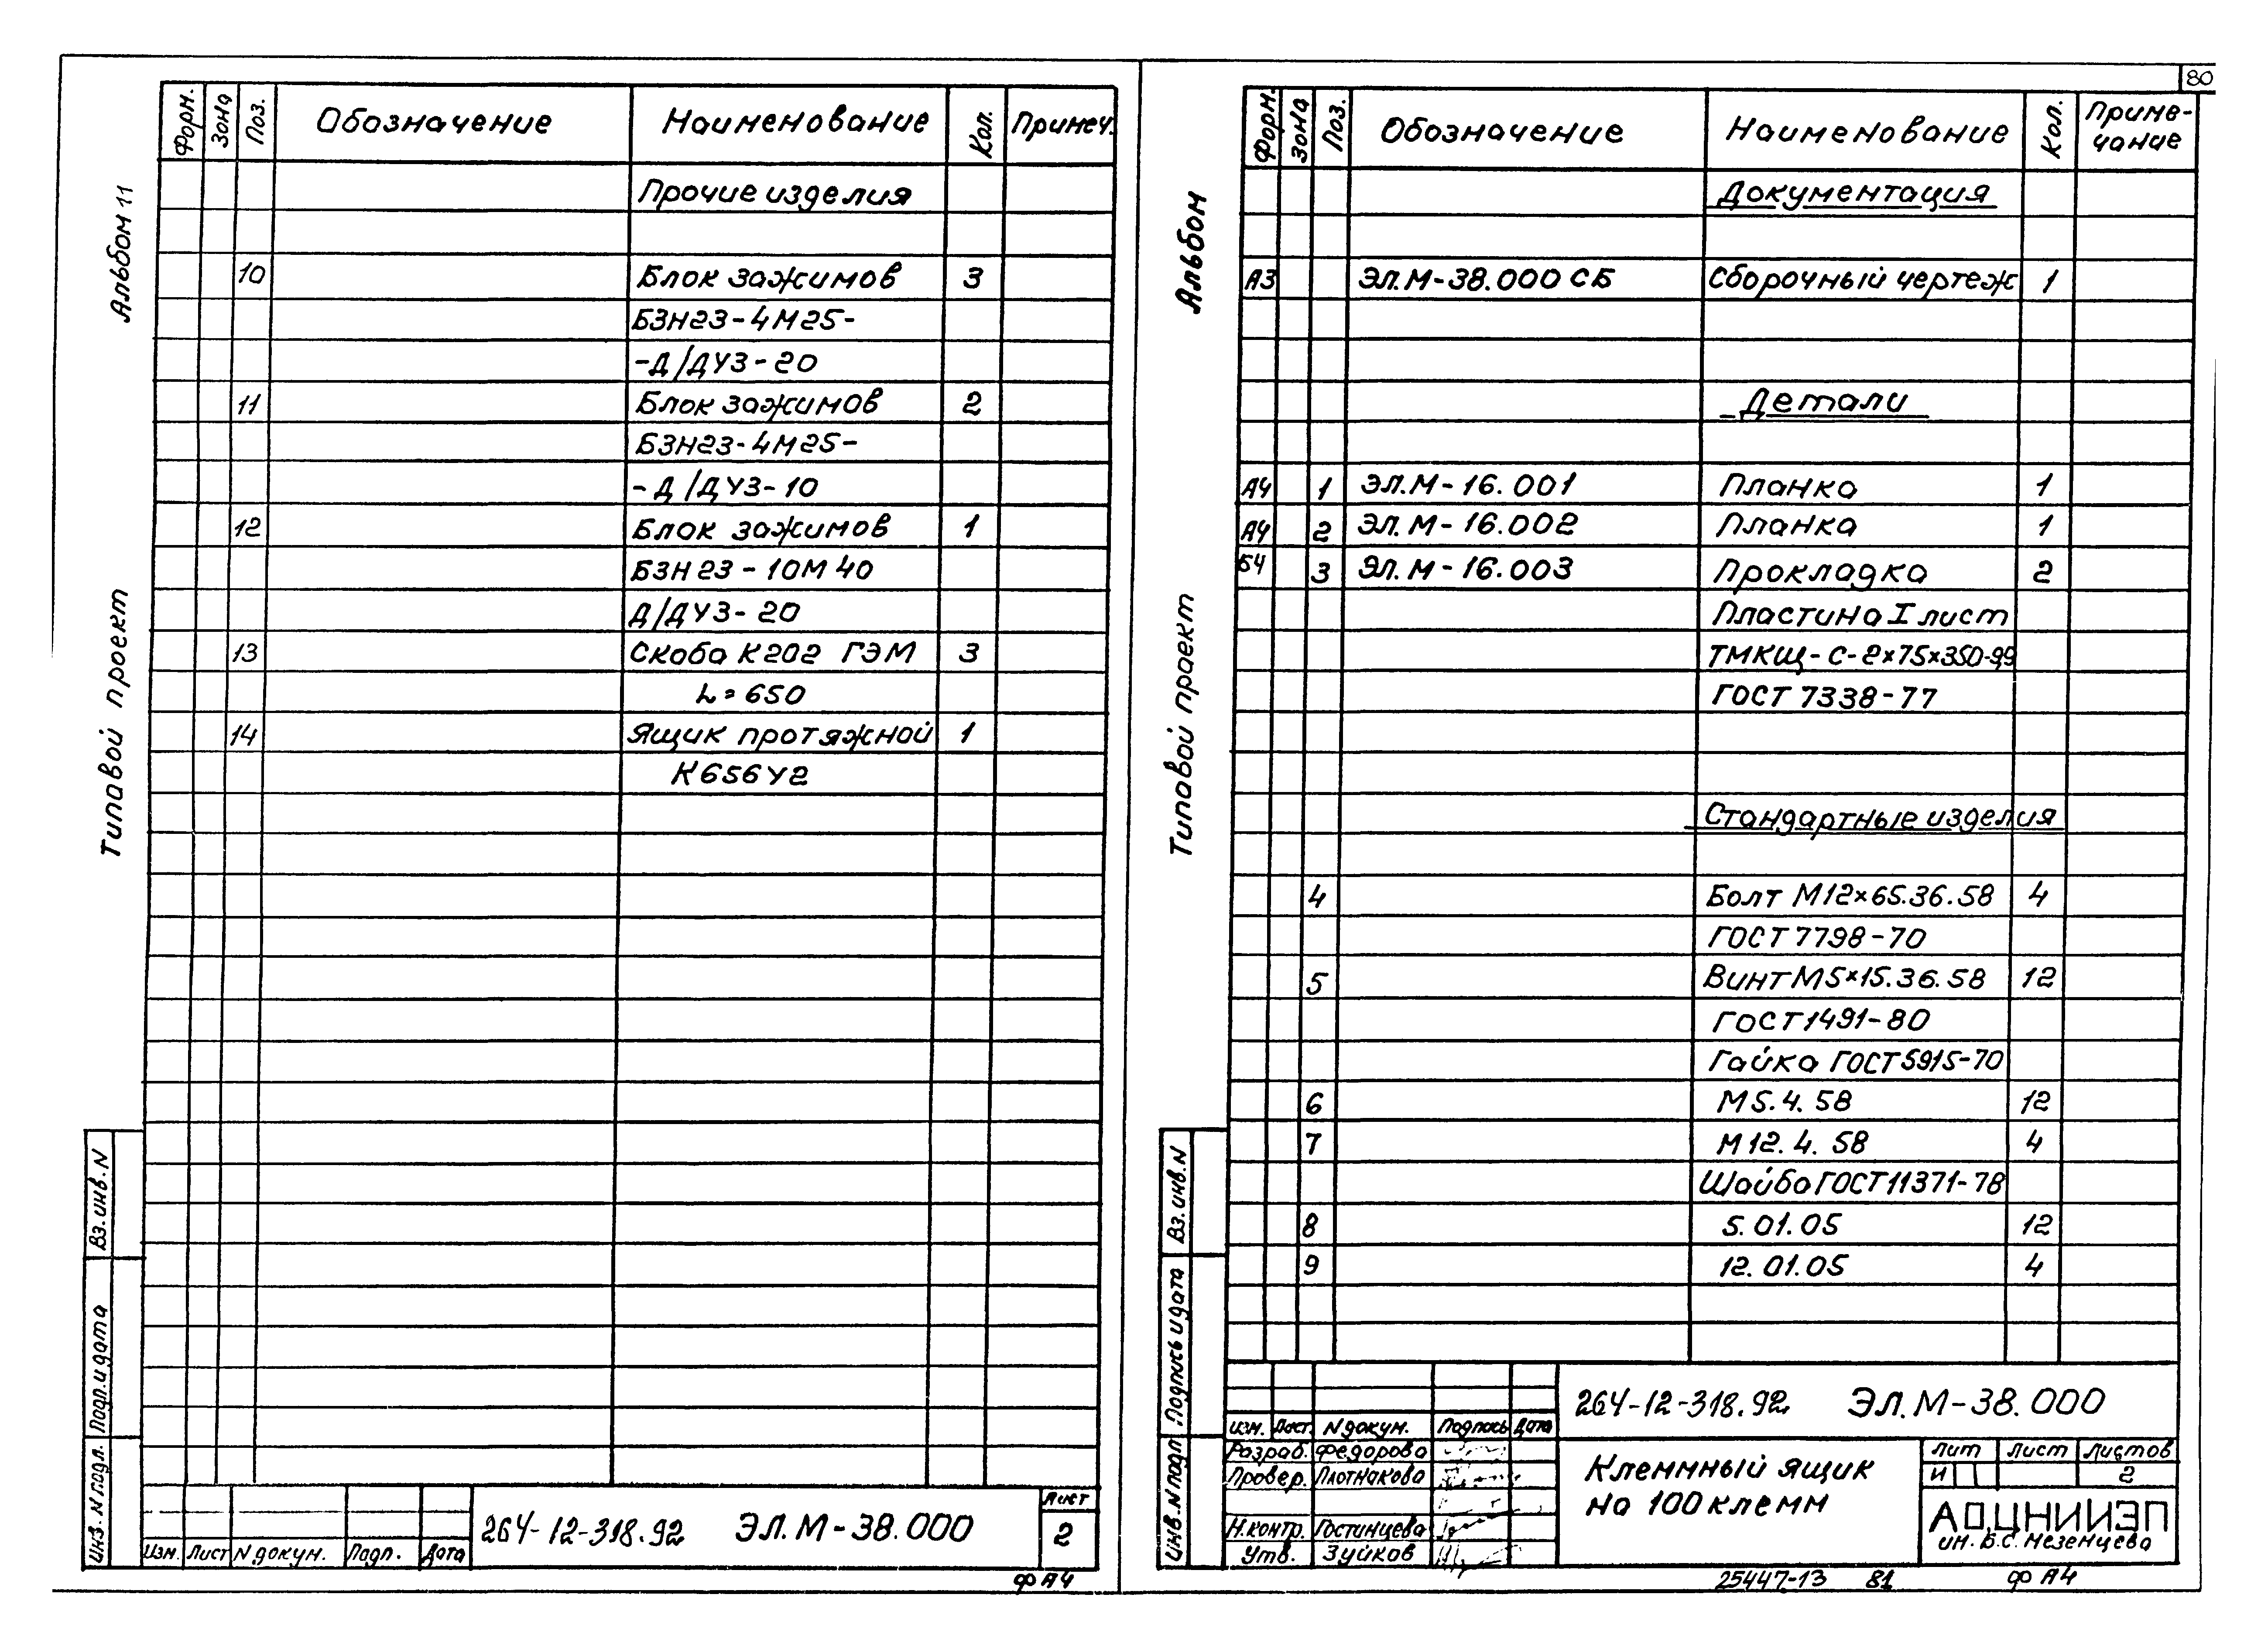 80
Альбом 11
Типовой проект
Форм. Зона Поз. Обозначение Наименование Кол. Примеч.
Прочие изделия
10 Блок зажимов 3
БЗН23-4М25-
-Д/ДУЗ-20
11 Блок зажимов 2
БЗН23-4М25-
-Д/ДУЗ-10
12 Блок зажимов 1
БЗН23-10М40
Д/ДУЗ-20
13 Скоба К202 ГЭМ 3
L=650
14 Ящик протяжной 1
К656У2
Вз. инв. N
Подп. и дата
Инв. N подл.
Изм. Лист N докум. Подп. Дата
264-12-318.92 ЭЛ.М-38.000
Лист
2
Ф А4
Альбом
Типовой проект
Форм. Зона Поз. Обозначение Наименование Кол. Приме-
чание
Документация
А3 ЭЛ.М-38.000 СБ Сборочный чертеж 1
Детали
А4 1 ЭЛ.М-16.001 Планка 1
А4 2 ЭЛ.М-16.002 Планка 1
Б4 3 ЭЛ.М-16.003 Прокладка 2
Пластина I лист
ТМКЩ-С-2×75×350-99
ГОСТ 7338-77
Стандартные изделия
4 Болт М12×65.36.58 4
ГОСТ 7798-70
5 Винт М5×15.36.58 12
ГОСТ 1491-80
Гайка ГОСТ 5915-70
6 М5.4.58 12
7 М12.4.58 4
Шайба ГОСТ 11371-78
8 5.01.05 12
9 12.01.05 4
Вз. инв. N
Подпись и дата
Инв. N подл
264-12-318.92 ЭЛ.М-38.000
Изм. Лист. N докум. Подпись Дата
Разраб. Федорова
Провер. Плотнакова
Н.контр. Гостинцева
Утв. Зуйков
Клеммный ящик
на 100 клемм
Лит Лист Листов
И 2
АО,ЦНИИЭП
им. Б.С. Мезенцева
25447-13 81 Ф А4